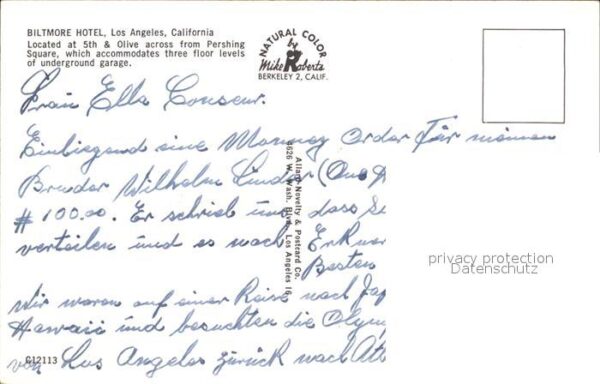 BILTMORE HOTEL, Los Angeles, California
Located at 5th & Olive across from Pershing
Square, which accommodates three floor levels
of underground garage.
NATURAL COLOR
by
Mike Roberts
BERKELEY 2, CALIF.
Frau Ella Conseur.
Einliegend eine Monney Order für meinen
Bruder Wilhelm Linder (One
# 100.00. Er schrieb uns dass
verteilen und es nach
Besten
Wir waren auf einer Reise nach Jap
Hawaii und besuchten die Olymp
von Los Angeles zurück nach Atl
Allan Novelty & Postcard Co.
4626 W. Wash. Blvd. Los Angeles 16
privacy protection
Datenschutz
C12113